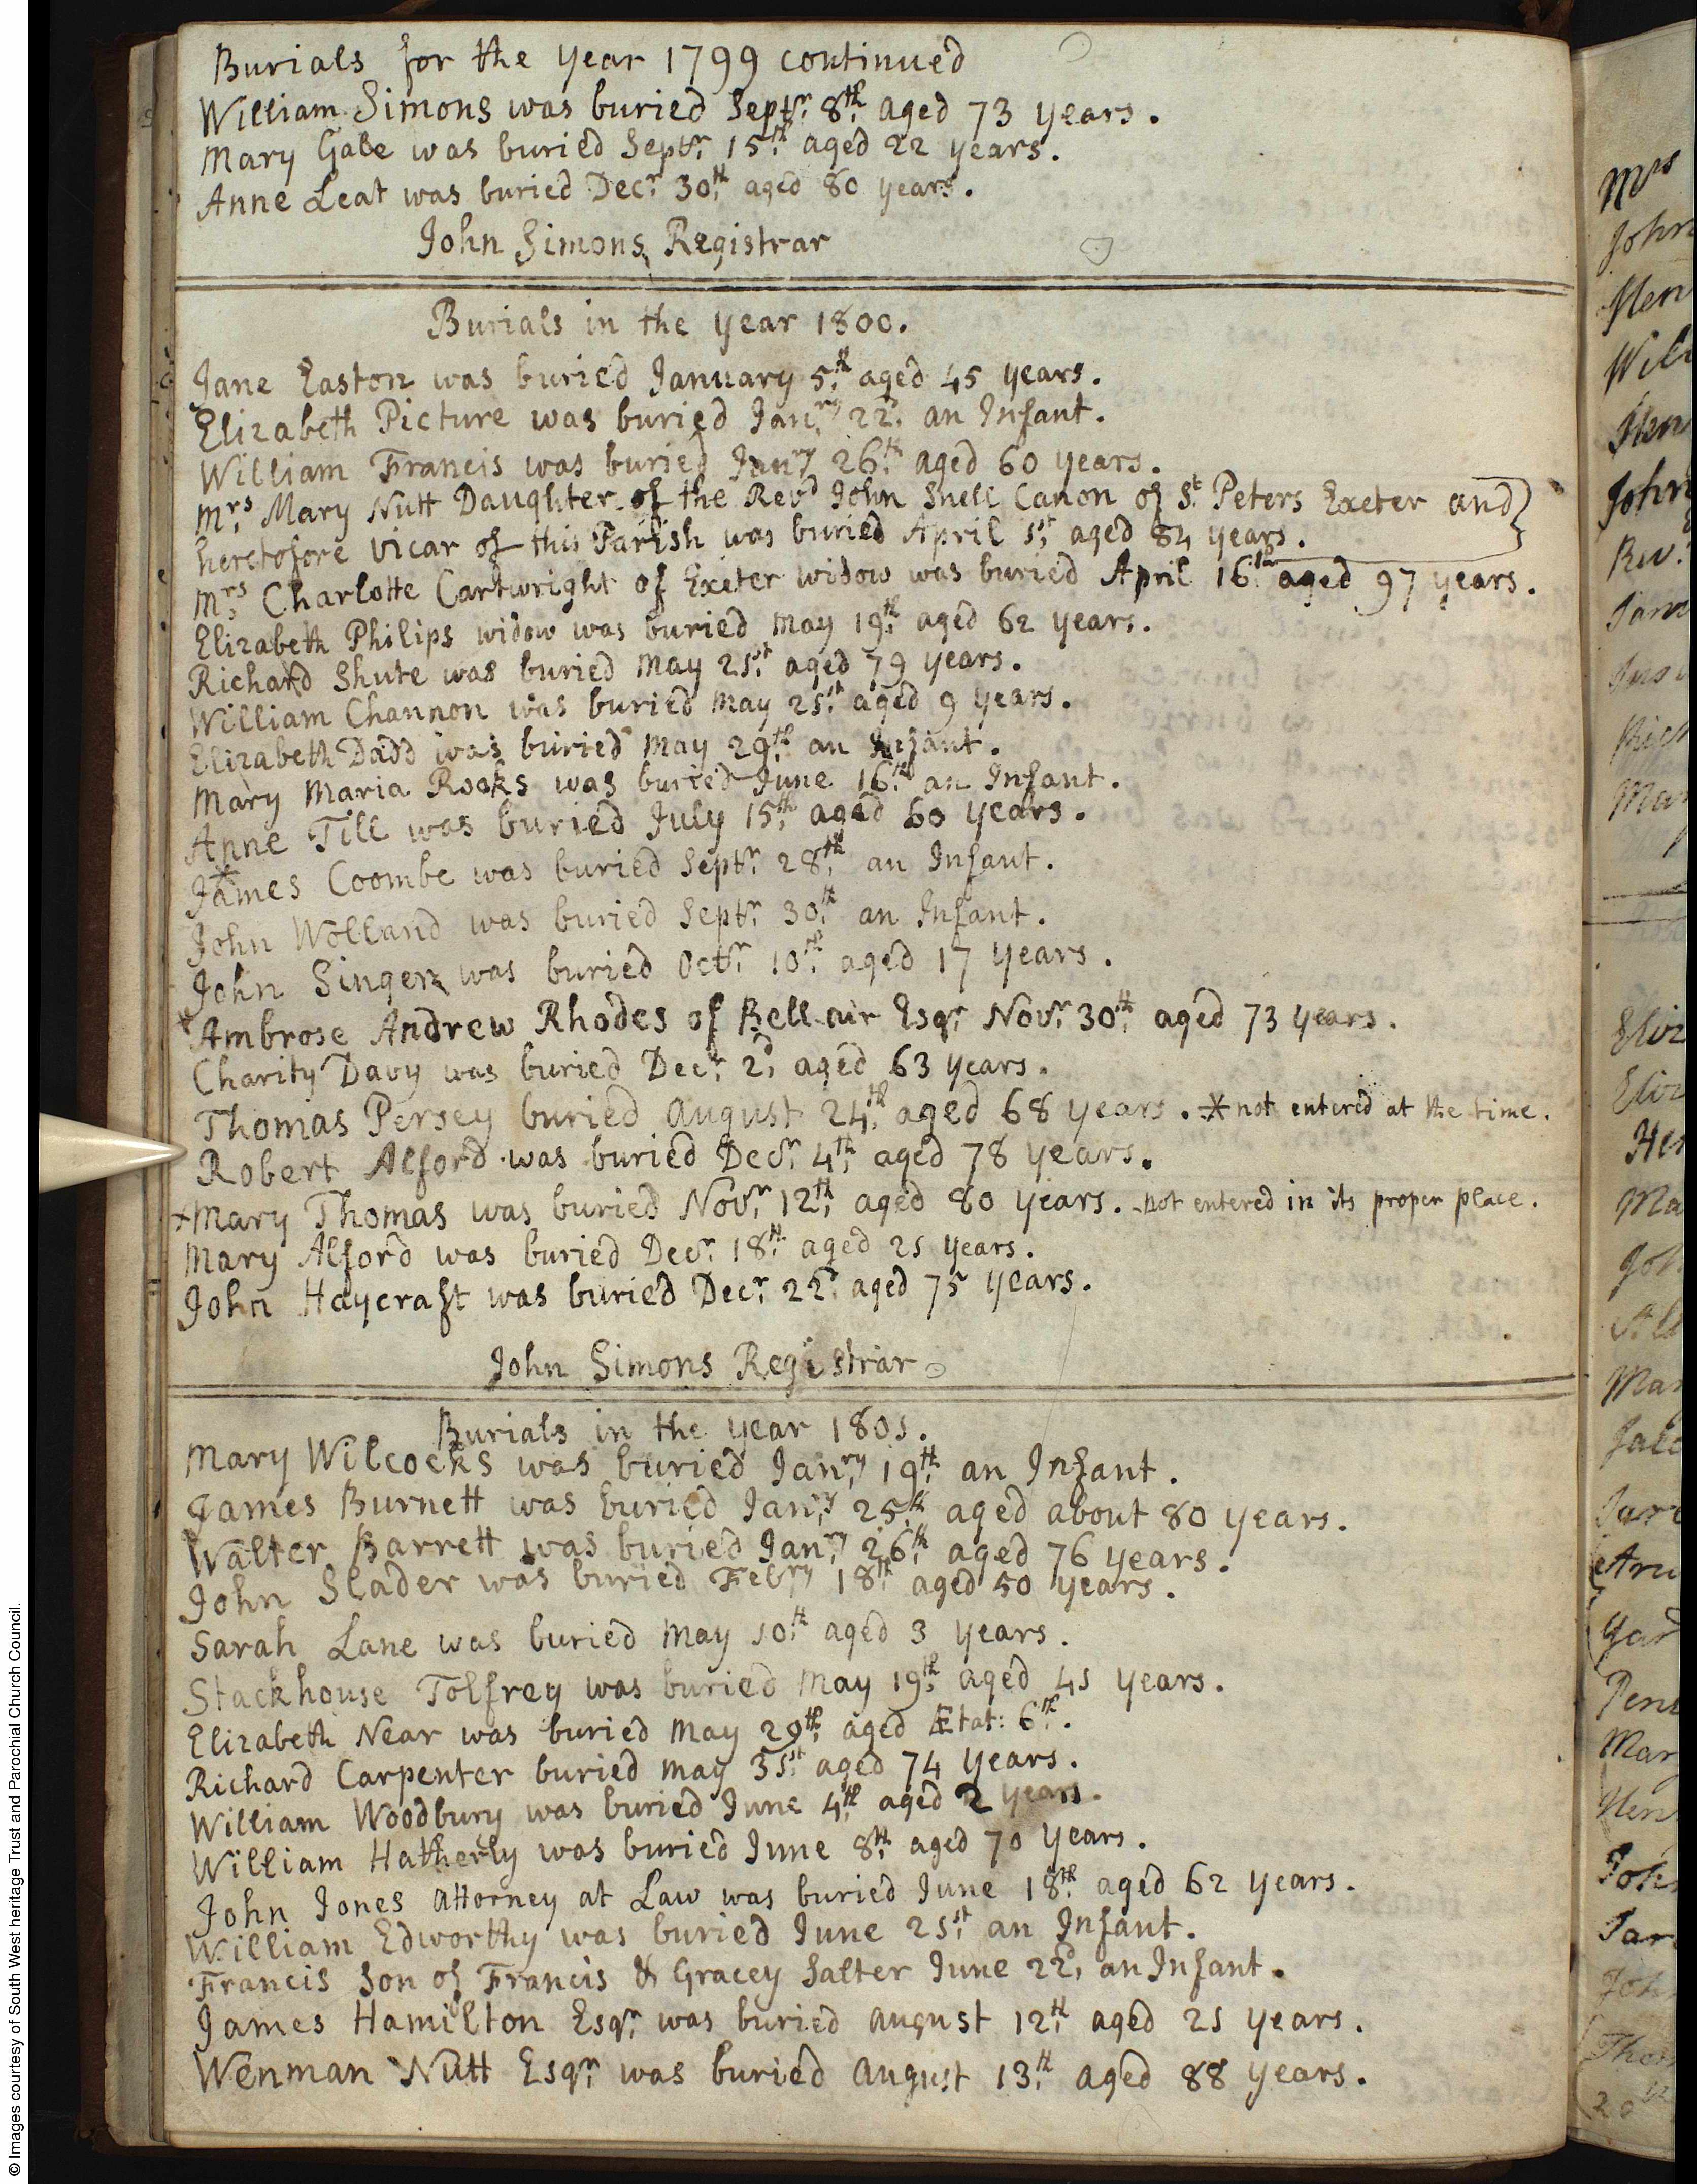 Burials for the year 1799 continued
William Simons was buried Septr. 8th. aged 73 years.
Mary Gale was buried Septr. 15th. aged 22 years.
Anne Leat was buried Decr. 30th. aged 80 years.
John Simons Registrar
Burials in the year 1800.
Jane Easton was buried January 5th. aged 45 years.
Elizabeth Picture was buried Janry. 22d. an Infant.
William Francis was buried Janry. 26th. aged 60 years.
Mrs. Mary Nutt Daughter of the Revd John Snell Canon of St. Peters Exeter and
heretofore Vicar of this Parish was buried April 1st. aged 84 years.
Mrs. Charlotte Cartwright of Exeter widow was buried April 16th aged 97 years.
Elizabeth Philips widow was buried May 19th. aged 62 years.
Richard Shute was buried May 21st. aged 79 years.
William Channon was buried May 21st. aged 9 years.
Elizabeth Dadd was buried May 29th. an Infant.
Mary Maria Rooks was buried June 16th. an Infant.
Anne Till was buried July 15th. aged 60 years.
James Coombe was buried Septr. 28th. an Infant.
John Wolland was buried Septr. 30th. an Infant.
John Singer was buried Octr. 10th. aged 17 years.
* Ambrose Andrew Rhodes of Bellair Esqr. Novr. 30th. aged 73 years.
Charity Davy was buried Decr. 2d. aged 63 years.
Thomas Persey buried August 24th. aged 68 years. * not entered at the time.
Robert Alford was buried Decr. 4th. aged 78 years.
+ Mary Thomas was buried Novr. 12th. aged 80 years. - not entered in its proper place.
Mary Alford was buried Decr. 18th. aged 21 years.
John Haycraft was buried Decr. 22d. aged 75 years.
John Simons Registrar
Burials in the year 1801.
Mary Wilcocks was buried Janry. 19th. an Infant.
James Burnett was buried Janry. 25th. aged about 80 years.
Walter Barrett was buried Janry. 26th. aged 76 years.
John Slader was buried Febry 18th. aged 50 years.
Sarah Lane was buried May 10th. aged 3 years.
Stackhouse Tolfrey was buried May 19th. aged 41 years.
Elizabeth Near was buried May 29th. aged Ætat: 6th.
Richard Carpenter buried May 31st. aged 74 years.
William Woodbury was buried June 4th. aged 2 years.
William Hatherly was buried June 8th. aged 70 years.
John Jones Attorney at Law was buried June 18th. aged 62 years.
William Edworthy was buried June 21st. an Infant.
Francis Son of Francis & Gracey Salter June 22d. an Infant.
James Hamilton Esqr. was buried August 12th. aged 21 years.
Wenman Nutt Esqr. was buried August 13th. aged 88 years.
© Images courtesy of South West heritage Trust and Parochial Church Council.